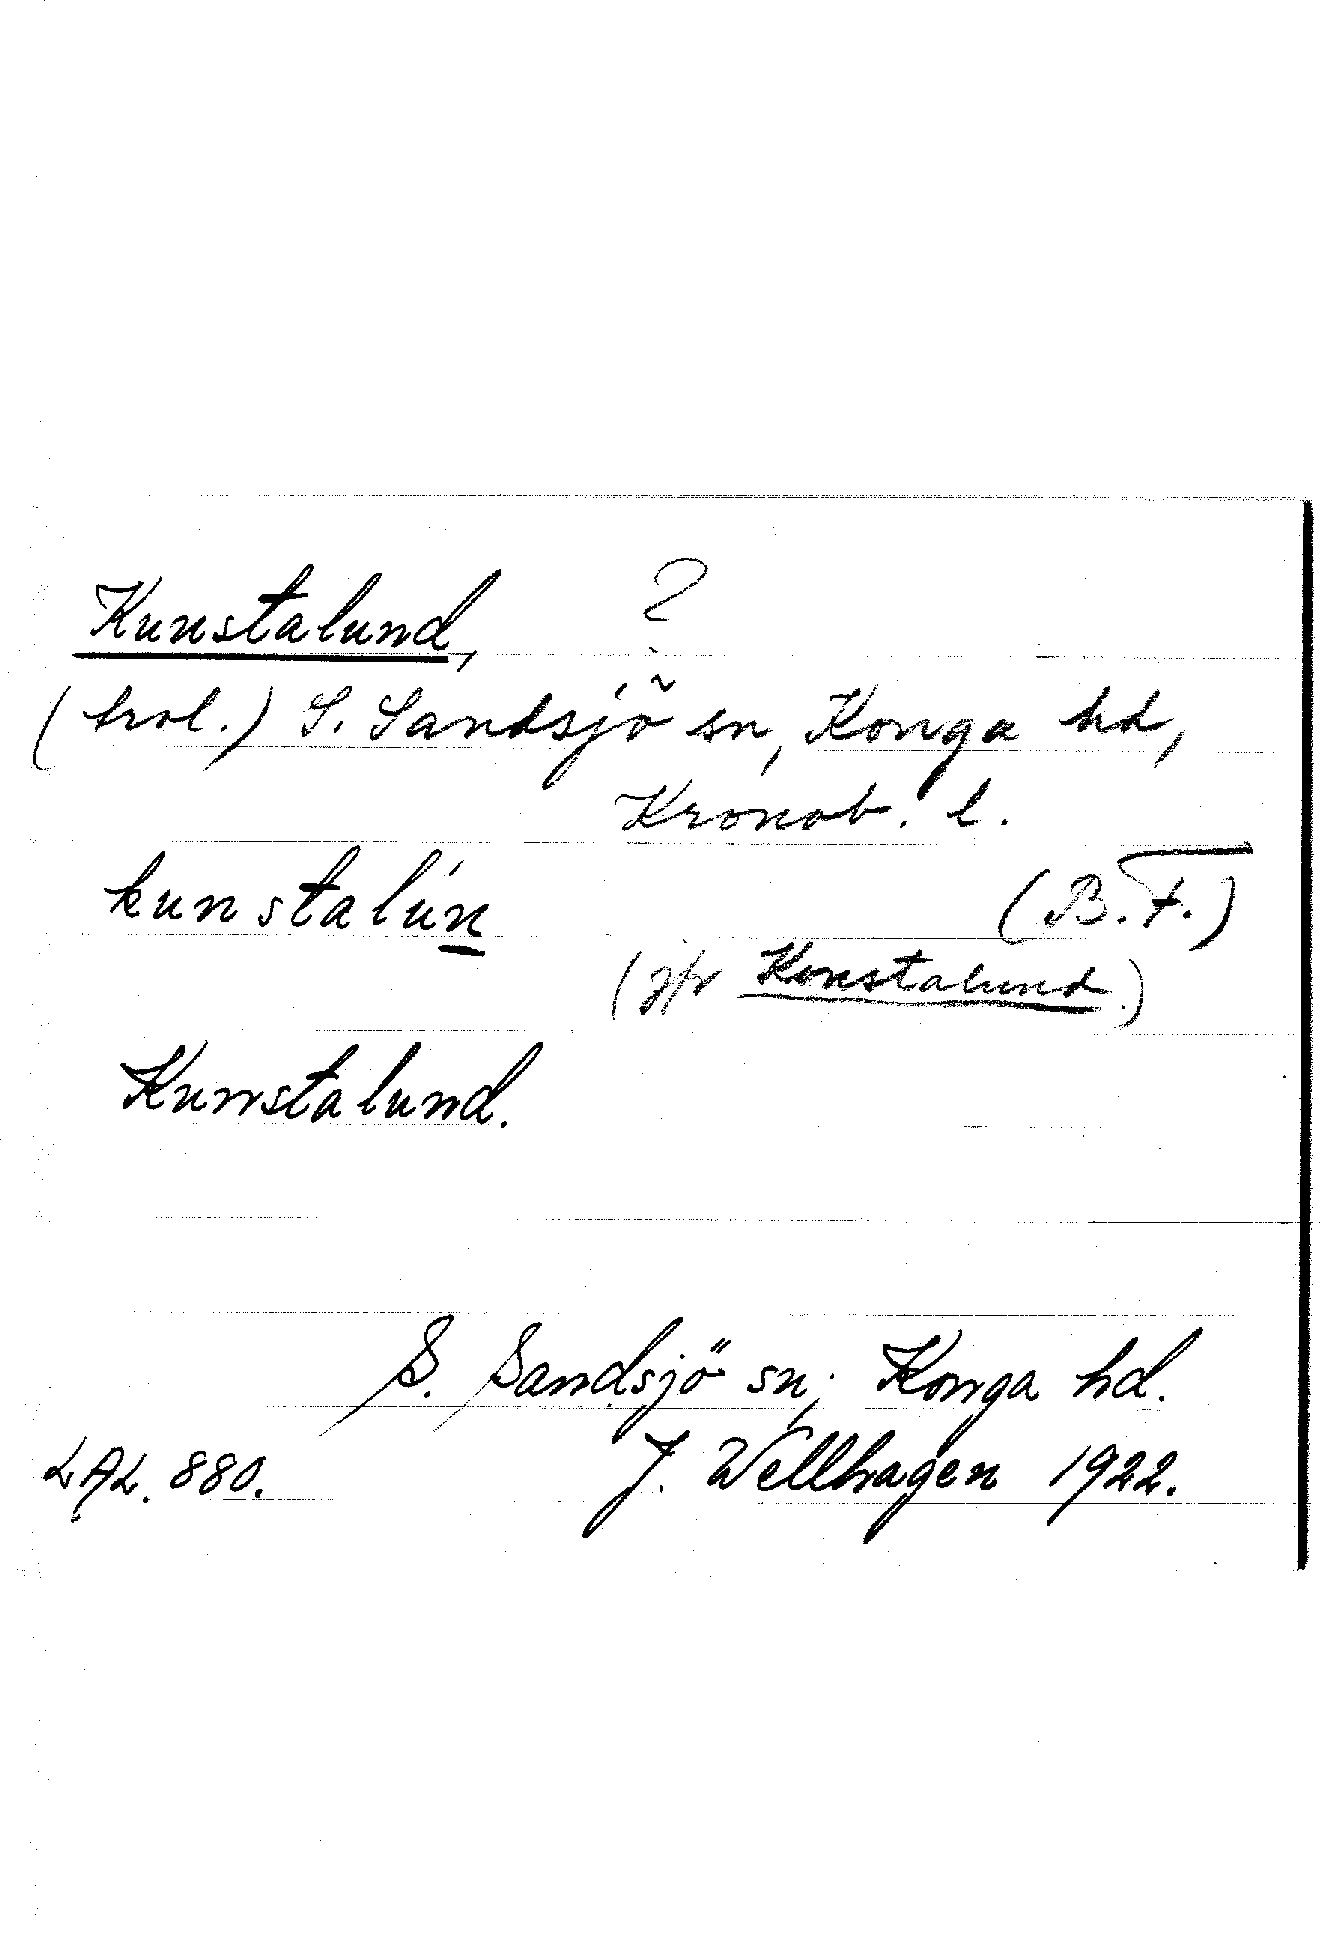 Kunstalund, ?
(trol.) S. Sandsjö sn, Konga hd,
Kronob. l.
kunstalún (B.F.)
(jfr Konstalund.)
Kunstalund.
S. Sandsjö sn; Konga hd.
LAL. 880. J. Wellhagen 1922.